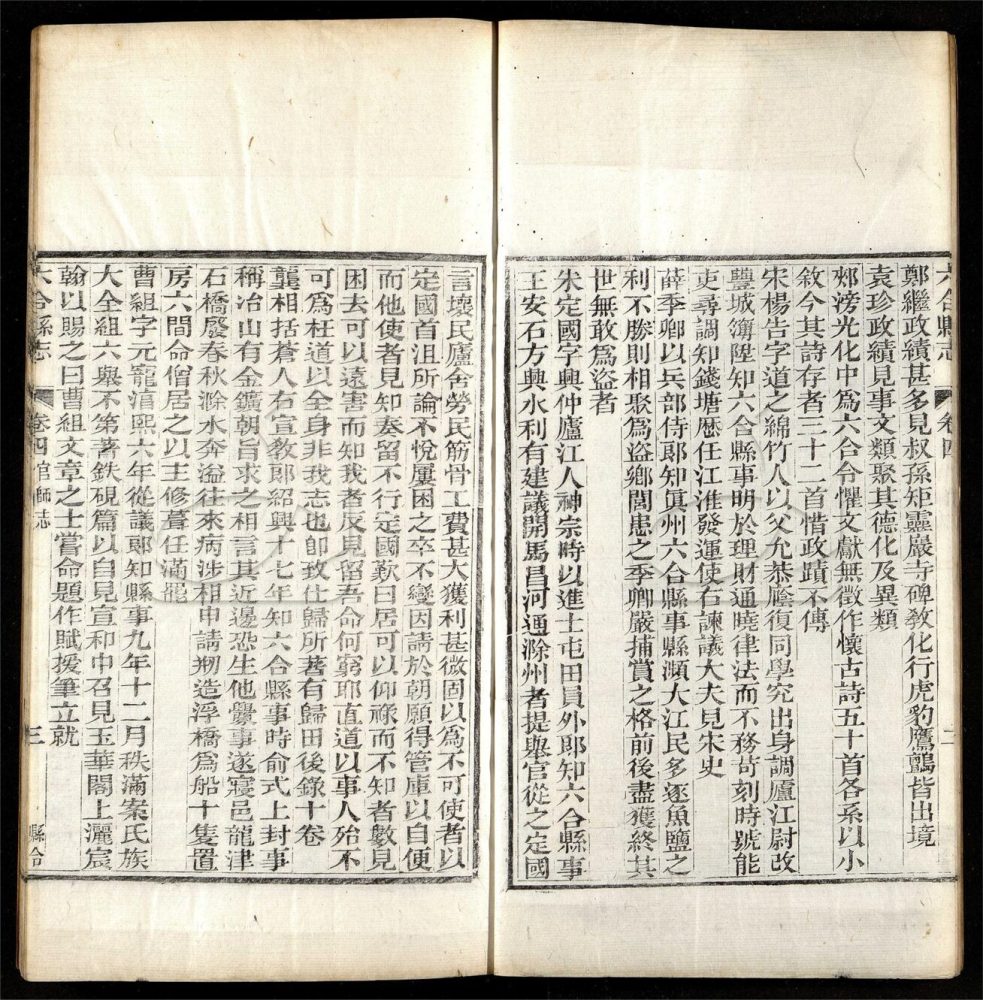 六合縣志
卷四
二
鄭繼政績甚多見叔孫矩靈巖寺碑敎化行虎豹鷹鸇皆出境
袁珍政績見事文類聚其德化及異類
郟滂光化中爲六合令懼文獻無徵作懷古詩五十首各系以小
敘今其詩存者三十二首惜政蹟不傳
宋楊告字道之綿竹人以父允恭廕復同學究出身調廬江尉改
豐城簿陞知六合縣事明於理財通曉律法而不務苛刻時號能
吏尋調知錢塘歴任江淮發運使右諫議大夫見宋史
薛季卿以兵部侍郞知眞州六合縣事縣瀕大江民多逐魚鹽之
利不勝則相聚爲盜鄉閭患之季卿嚴捕賞之格前後盡獲終其
世無敢爲盜者
朱定國字興仲廬江人神宗時以進士屯田員外郞知六合縣事
王安石方興水利有建議開馬昌河通滁州者提舉官從之定國
言壞民廬舍勞民筋骨工費甚大獲利甚微固以爲不可使者以
定國首沮所論不悅屢困之卒不變因請於朝願得管庫以自便
而他使者見知奏留不行定國歎曰居可以仰祿而不知者數見
困去可以遠害而知我者反見留吾命何窮耶直道以事人殆不
可爲枉道以全身非我志也卽致仕歸所著有歸田後錄十卷
龔相括蒼人右宣敎郞紹興十七年知六合縣事時俞式上封事
稱冶山有金鑛朝旨求之相言其近邊恐生他釁事遂寢邑龍津
石橋廢春秋滁水奔溢往來病涉相申請剏造浮橋爲船十隻置
房六間命僧居之以主修葺任滿罷
曹組字元寵淯熙六年從議郞知縣事九年十二月秩滿案氏族
大全組六舉不第著鉄硯篇以自見宣和中召見玉華閣上灑宸
翰以賜之曰曹組文章之士嘗命題作賦援筆立就
六合縣志
卷四官師志
三